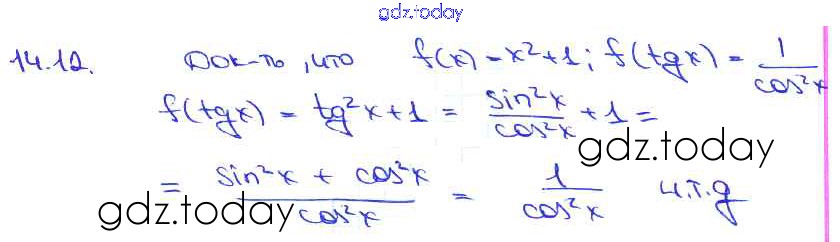 gdz.today
14.12. Док-ть, что f(x) = x²+1; f(tgx) = 1/cos²x
f(tgx) = tg²x+1 = sin²x/cos²x + 1 =
gdz.today
= (sin²x + cos²x)/cos²x = 1/cos²x ч.т.д
gdz.today